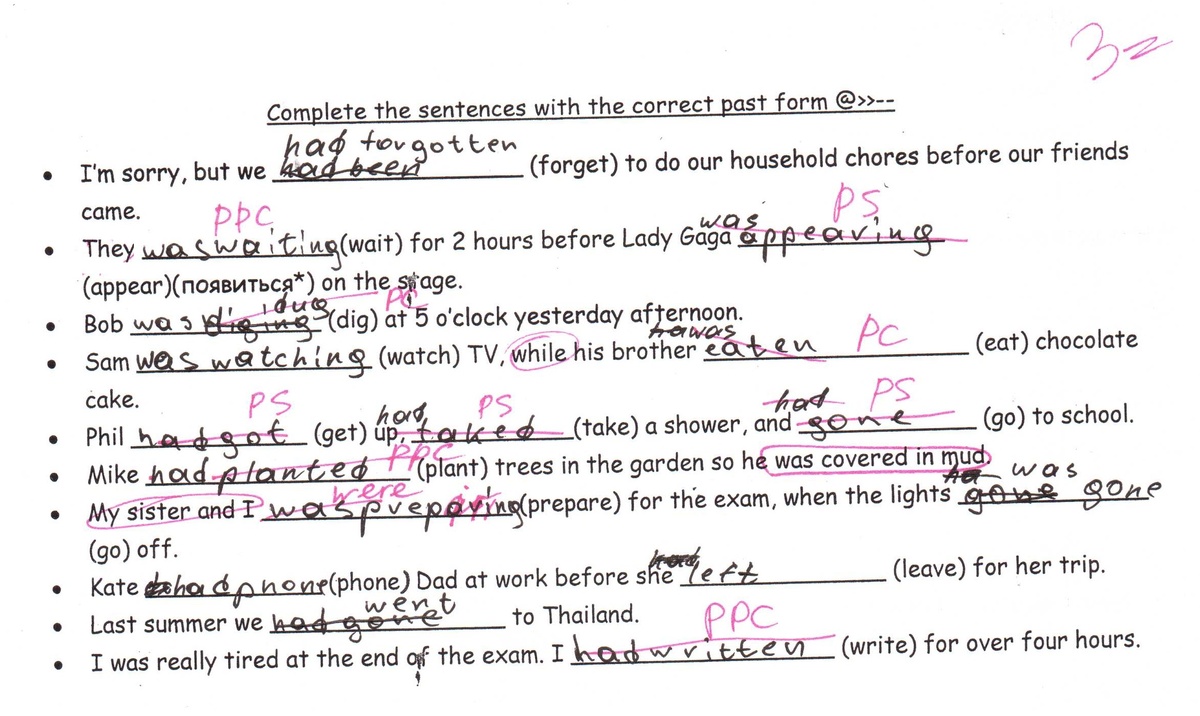 3=
Complete the sentences with the correct past form @>>--
had forgotten
• I'm sorry, but we had been (forget) to do our household chores before our friends
came.
PPC
PS
was
• They was waiting (wait) for 2 hours before Lady Gaga appearing
(appear)(появиться*) on the stage.
dug
PC
• Bob was diging (dig) at 5 o'clock yesterday afternoon.
was
PC
• Sam was watching (watch) TV, while his brother eaten (eat) chocolate
cake.
PS
had
PS
had
PS
• Phil had got (get) up, taked (take) a shower, and gone (go) to school.
PPC
• Mike had planted (plant) trees in the garden so he was covered in mud
were
was
• My sister and I was preparing (prepare) for the exam, when the lights gone gone
(go) off.
had
• Kate had phone (phone) Dad at work before she left (leave) for her trip.
went
• Last summer we had gone to Thailand.
PPC
• I was really tired at the end of the exam. I had written (write) for over four hours.